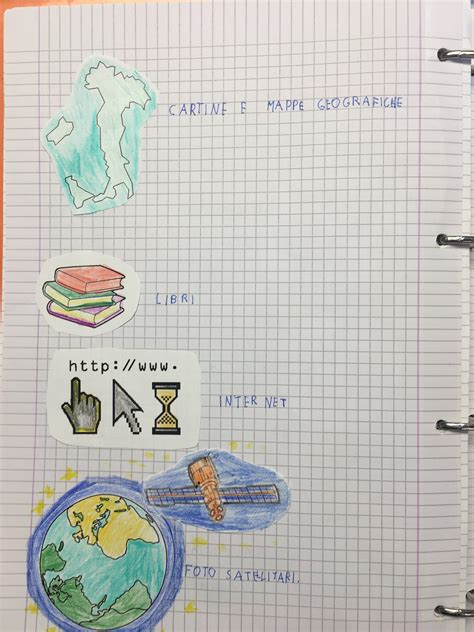 CARTINE E MAPPE GEOGRAFICHE
LIBRI
http://www.
INTERNET
FOTO SATELITARI.